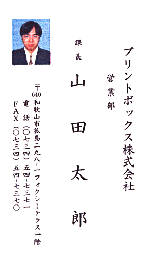 プリントボックス株式会社
営業部
課長
山田太郎
〒640 和歌山市松島二九八ー一ヴィクシーテラス一階
電話（〇七三四）五四-五三七一
ＦＡＸ（〇七三四）五四-七三七〇